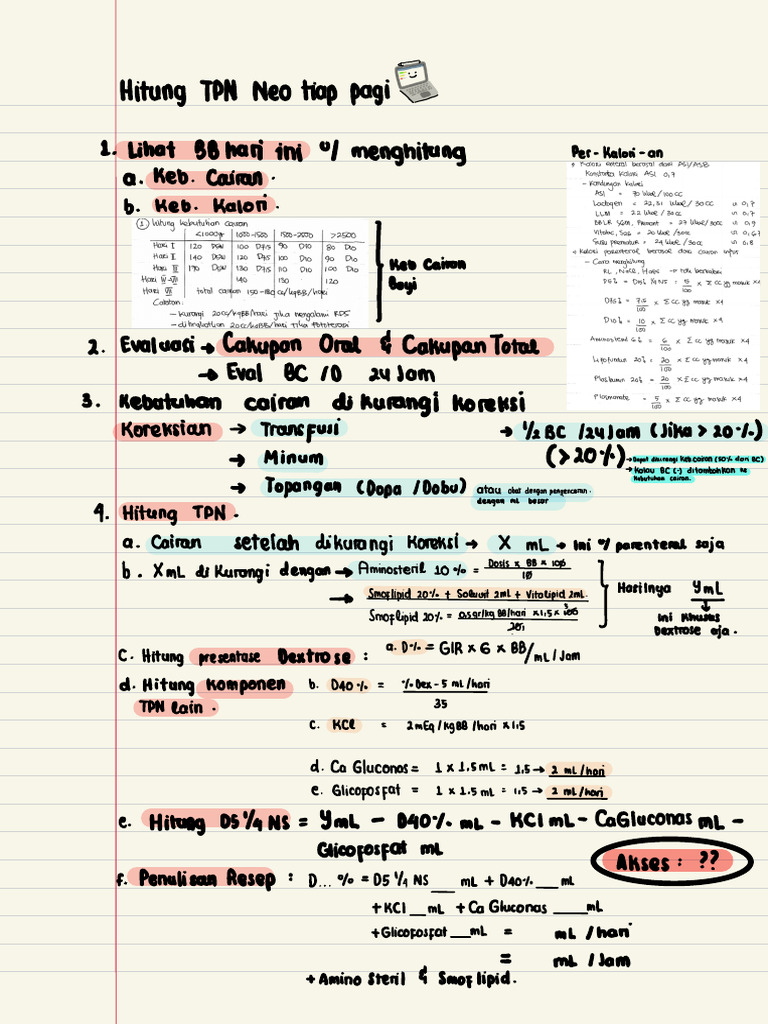 Hitung TPN Neo tiap pagi
1. Lihat BB hari ini u/ menghitung
a. Keb. Cairan
b. Keb. Kalori.
① Hitung kebutuhan cairan
<1000gr 1000-1500 1500-2500 >2500
Hari I 120 D5W 100 D7,5 90 D10 80 D10
Hari II 140 D5W 120 D7,5 100 D10 90 D10
Hari III 130 D7,5 110 D10 100 D10
140 130 120
Hari VII total cairan 150-180 cc/kgBB/hari
Catatan:
- kurangi 20cc/kgBB/hari jika mengalami RDS
- ditingkatkan 20cc/kgBB/hari jika fototerapi
Keb Cairan
Bayi
Per-Kalori-an
Kalori enteral berasal dari ASI/ASB
Konstanta Kalori ASI 0,7
- Kandungan kalori
ASI = 70 kkal/100cc
Lactogen = 22,31 kkal/30cc ∾ 0,7
LLM = 22 kkal/30cc ∾ 0,7
BBLR SGM, = 27 kkal/30cc ∾ 0,9
= 20 kkal/30cc ∾ 0,67
Susu prematur = 24 kkal/30cc ∾ 0.8
Kalori parenteral berasal dari cairan infus
- Cara menghitung
RL, NaCl, → tdk berkalori
D5% = 5/100 x Σ cc yg masuk x4
= 7,5/100 x Σ cc yg masuk x4
D10% = 10/100 x Σ cc yg masuk x4
Aminosteril 6% = 6/100 x Σ cc yg masuk x4
20% = 20/100 x Σ cc yg masuk x4
20% = 20/100 x Σ cc yg masuk x4
= 5/100 x Σ cc yg masuk x4
2. Evaluasi → Cakupan Oral & Cakupan Total
→ Eval BC /D 24 Jam
3. Kebutuhan cairan di kurangi Koreksi
Koreksian → Transfusi
→ Minum
→ Topangan (Dopa /Dobu)
atau obat dengan pengenceran
dengan mL besar
→ 1/2 BC /24 Jam (Jika > 20%)
(>20%)
→ Dapat dikurangi Keb cairan (50% dari BC)
→ Kalau BC (-) ditambahkan ke
kebutuhan cairan.
4. Hitung TPN.
a. Cairan setelah dikurangi Koreksi → X mL → ini u/ parenteral saja
b. X mL di Kurangi dengan → Aminosteril 10% = Dosis x BB x 100 / 10
→ Smoflipid 20% + Soluvit 2mL + Vitalipid 2mL
Smoflipid 20% = 0.5gr/kg BB/hari x 1,5 x 100 / 20
Hasilnya Y mL
↓
ini Khusus
Dextrose aja.
C. Hitung presentase Dextrose :
a. D% = GIR x 6 x BB/mL/Jam
d. Hitung Komponen
TPN lain.
b. D40% = % Dex - 5 mL/hari / 35
c. KCl = 2mEq/kgBB/hari x 1,5
d. Ca Gluconas = 1 x 1.5 mL = 1,5 → 2 mL/hari
e. Glicofosfat = 1 x 1.5 mL = 1,5 → 2 mL/hari
e. Hitung D5 1/4 NS = Y mL - D40% mL - KCl mL - Ca Gluconas mL -
Glicofosfat mL
Akses : ??
f. Penulisan Resep : D... % = D5 1/4 NS ___ mL + D40% ___ mL
+ KCl __ mL + Ca Gluconas ____ mL
+ Glicofosfat ___ mL = mL /hari
= mL /Jam
+ Amino Steril & Smoflipid.